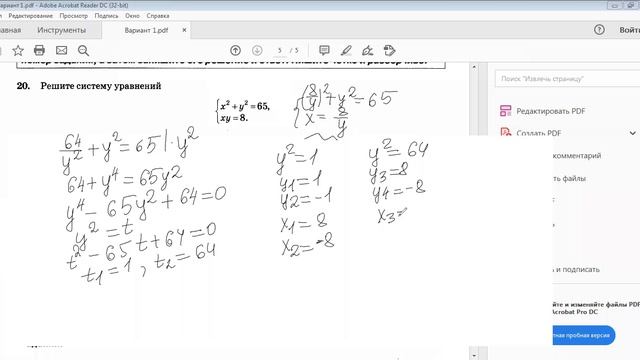 ариант 1.pdf - Adobe Acrobat Reader DC (32-bit)
Редактирование Просмотр Подпись Окно Справка
Главная Инструменты Вариант 1.pdf × Войти
5 / 5
20. Решите систему уравнений
x² + y² = 65,
xy = 8.
(8/y)² + y² = 65
x = 8/y
64/y² + y² = 65 | · y²
64 + y⁴ = 65y²
y⁴ - 65y² + 64 = 0
y² = t
t² - 65t + 64 = 0
t1 = 1, t2 = 64
y² = 1
y1 = 1
y2 = -1
x1 = 8
x2 = -8
y² = 64
y3 = 8
y4 = -8
x3 =
Поиск "Изменить страницу"
Редактировать PDF
Создать PDF
комментарий
ть файлы
ть и подписать
и изменяйте файлы PDF
Acrobat Pro DC
тная пробная версия